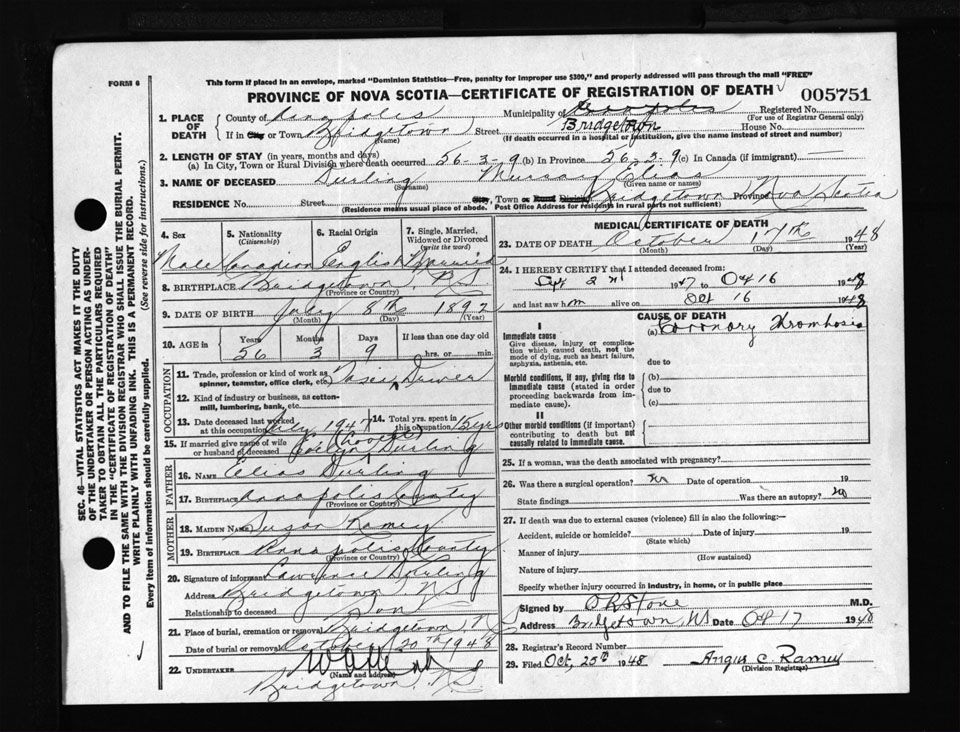 FORM 6
This form if placed in an envelope, marked "Dominion Statistics—Free, penalty for improper use $300," and properly addressed will pass through the mail "FREE"
PROVINCE OF NOVA SCOTIA—CERTIFICATE OF REGISTRATION OF DEATH
005751
1. PLACE OF DEATH
County of Annapolis Municipality of Annapolis Registered No.
(For use of Registrar General only)
If in City or Town Bridgetown Street Bridgetown House No.
(Name) (If death occurred in a hospital or institution, give the name instead of street and number)
2. LENGTH OF STAY (in years, months and days)
(a) In City, Town or Rural Division where death occurred 56-3-9 (b) In Province 56-3-9 (c) In Canada (if immigrant)
3. NAME OF DECEASED Durling Murray Elias
(Surname) (Given name or names)
RESIDENCE No. Street City, Town or Rural Division Bridgetown Province Nova Scotia
(Residence means usual place of abode. Post Office Address for residents in rural parts not sufficient)
4. Sex 5. Nationality (Citizenship) 6. Racial Origin 7. Single, Married, Widowed or Divorced (write the word)
Male Canadian English Married
8. BIRTHPLACE Bridgetown N.S.
(Province or Country)
9. DATE OF BIRTH July 8th 1892
(Month) (Day) (Year)
10. AGE in Years Months Days If less than one day old
56 3 9 hrs. or min.
OCCUPATION
11. Trade, profession or kind of work as spinner, teamster, office clerk, etc. Taxi Driver
12. Kind of industry or business, as cotton-mill, lumbering, bank, etc.
13. Date deceased last worked at this occupation July 1947 14. Total yrs. spent in this occupation 15 yrs
15. If married give name of wife or husband of deceased Evelyn Durling
FATHER
16. NAME Elias Durling
17. BIRTHPLACE Annapolis County
(Province or Country)
MOTHER
18. MAIDEN NAME Susan Ramey
19. BIRTHPLACE Annapolis County
(Province or Country)
20. Signature of informant Lawrence Durling
Address Bridgetown, NS
Relationship to deceased Son
21. Place of burial, cremation or removal Bridgetown, NS
Date of burial or removal October 20th 1948
22. UNDERTAKER
(Name and address)
Bridgetown, NS
MEDICAL CERTIFICATE OF DEATH
23. DATE OF DEATH October 17th 1948
(Month) (Day) (Year)
24. I HEREBY CERTIFY that I attended deceased from:
Sept 2nd 1947 to Oct 16 1948
and last saw him alive on Oct 16 1948
CAUSE OF DEATH
I
Immediate cause (a) Coronary Thrombosis
Give disease, injury or complication which caused death, not the mode of dying, such as heart failure, asphyxia, asthenia, etc.
due to
Morbid conditions, if any, giving rise to immediate cause (stated in order proceeding backwards from immediate cause).
(b)
due to
(c)
II
Other morbid conditions (if important) contributing to death but not causally related to immediate cause.
25. If a woman, was the death associated with pregnancy?
26. Was there a surgical operation? no Date of operation 19
State findings Was there an autopsy? no
27. If death was due to external causes (violence) fill in also the following:—
Accident, suicide or homicide? Date of injury 19
(State which)
Manner of injury
(How sustained)
Nature of injury
Specify whether injury occurred in industry, in home, or in public place
Signed by M.D.
Address Bridgetown, NS Date Oct 17 1948
28. Registrar's Record Number
29. Filed Oct, 25th 1948 Angus C. Ramey
(Division Registrar)
SEC. 46—VITAL STATISTICS ACT MAKES IT THE DUTY
OF THE UNDERTAKER OR PERSON ACTING AS UNDER-
TAKER TO OBTAIN ALL THE PARTICULARS REQUIRED
IN THE "CERTIFICATE OF REGISTRATION OF DEATH"
AND TO FILE THE SAME WITH THE DIVISION REGISTRAR WHO SHALL ISSUE THE BURIAL PERMIT.
WRITE PLAINLY WITH UNFADING INK. THIS IS A PERMANENT RECORD.
Every item of information should be carefully supplied. (See reverse side for instructions.)